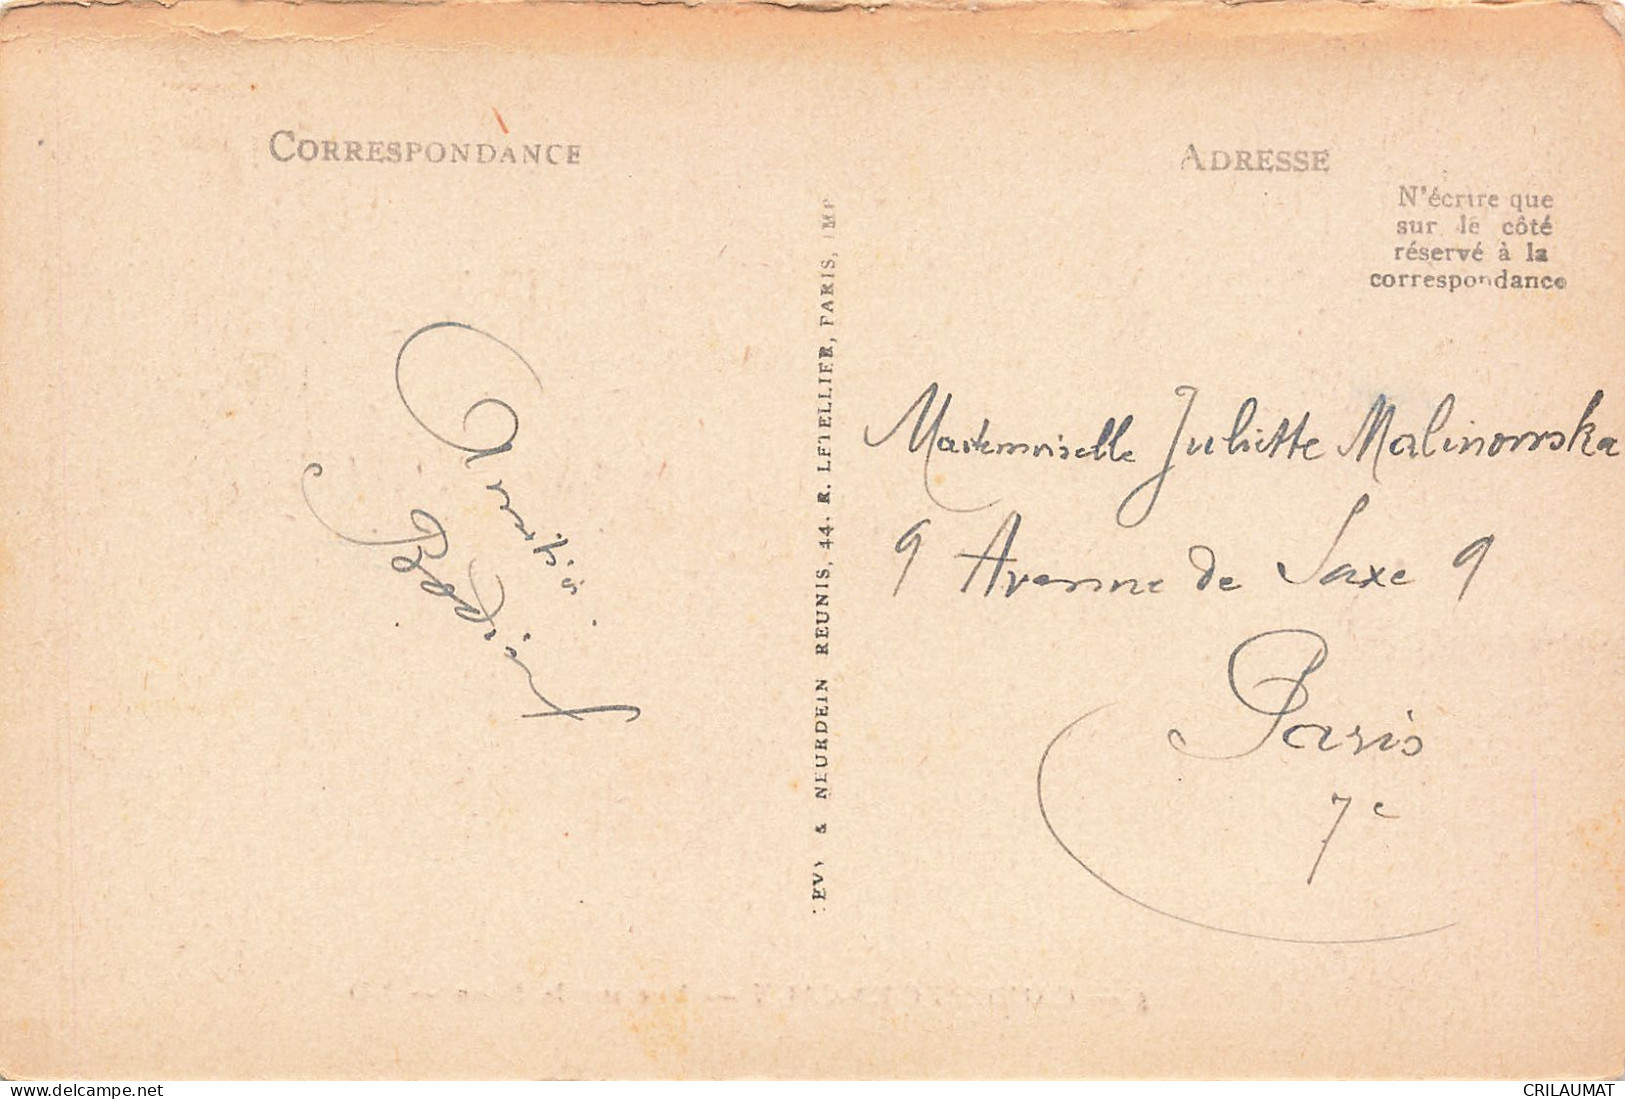 CORRESPONDANCE
Bons Baisers
ADRESSE
N'écrire que
sur le côté
réservé à la
correspondance
LEVY & NEURDEIN REUNIS, 44. R. LETELLIER, PARIS, IMP
Mademoiselle Juliette Malinowska
9 Avenue de Saxe 9
Paris
7e
www.delcampe.net
CRILAUMAT